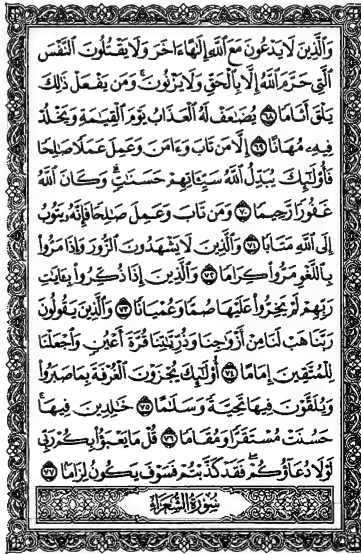 وَالَّذِينَ لَا يَدْعُونَ مَعَ اللَّهِ إِلَٰهًا ءَاخَرَ وَلَا يَقْتُلُونَ النَّفْسَ
الَّتِي حَرَّمَ اللَّهُ إِلَّا بِالْحَقِّ وَلَا يَزْنُونَ ۚ وَمَن يَفْعَلْ ذَٰلِكَ
يَلْقَ أَثَامًا ٦٨ يُضَٰعَفْ لَهُ الْعَذَابُ يَوْمَ الْقِيَٰمَةِ وَيَخْلُدْ
فِيهِۦ مُهَانًا ٦٩ إِلَّا مَن تَابَ وَءَامَنَ وَعَمِلَ عَمَلًا صَٰلِحًا
فَأُولَٰئِكَ يُبَدِّلُ اللَّهُ سَيِّـَٔاتِهِمْ حَسَنَٰتٍ ۗ وَكَانَ اللَّهُ
غَفُورًا رَّحِيمًا ٧٠ وَمَن تَابَ وَعَمِلَ صَٰلِحًا فَإِنَّهُۥ يَتُوبُ
إِلَى اللَّهِ مَتَابًا ٧١ وَالَّذِينَ لَا يَشْهَدُونَ الزُّورَ وَإِذَا مَرُّوا
بِاللَّغْوِ مَرُّوا كِرَامًا ٧٢ وَالَّذِينَ إِذَا ذُكِّرُوا بِـَٔايَٰتِ
رَبِّهِمْ لَمْ يَخِرُّوا عَلَيْهَا صُمًّا وَعُمْيَانًا ٧٣ وَالَّذِينَ يَقُولُونَ
رَبَّنَا هَبْ لَنَا مِنْ أَزْوَٰجِنَا وَذُرِّيَّٰتِنَا قُرَّةَ أَعْيُنٍ وَاجْعَلْنَا
لِلْمُتَّقِينَ إِمَامًا ٧٤ أُولَٰئِكَ يُجْزَوْنَ الْغُرْفَةَ بِمَا صَبَرُوا
وَيُلَقَّوْنَ فِيهَا تَحِيَّةً وَسَلَٰمًا ٧٥ خَٰلِدِينَ فِيهَا ۚ
حَسُنَتْ مُسْتَقَرًّا وَمُقَامًا ٧٦ قُلْ مَا يَعْبَؤُا بِكُمْ رَبِّي
لَوْلَا دُعَاؤُكُمْ ۖ فَقَدْ كَذَّبْتُمْ فَسَوْفَ يَكُونُ لِزَامًا ٧٧
سُورَةُ الشُّعَرَاءِ